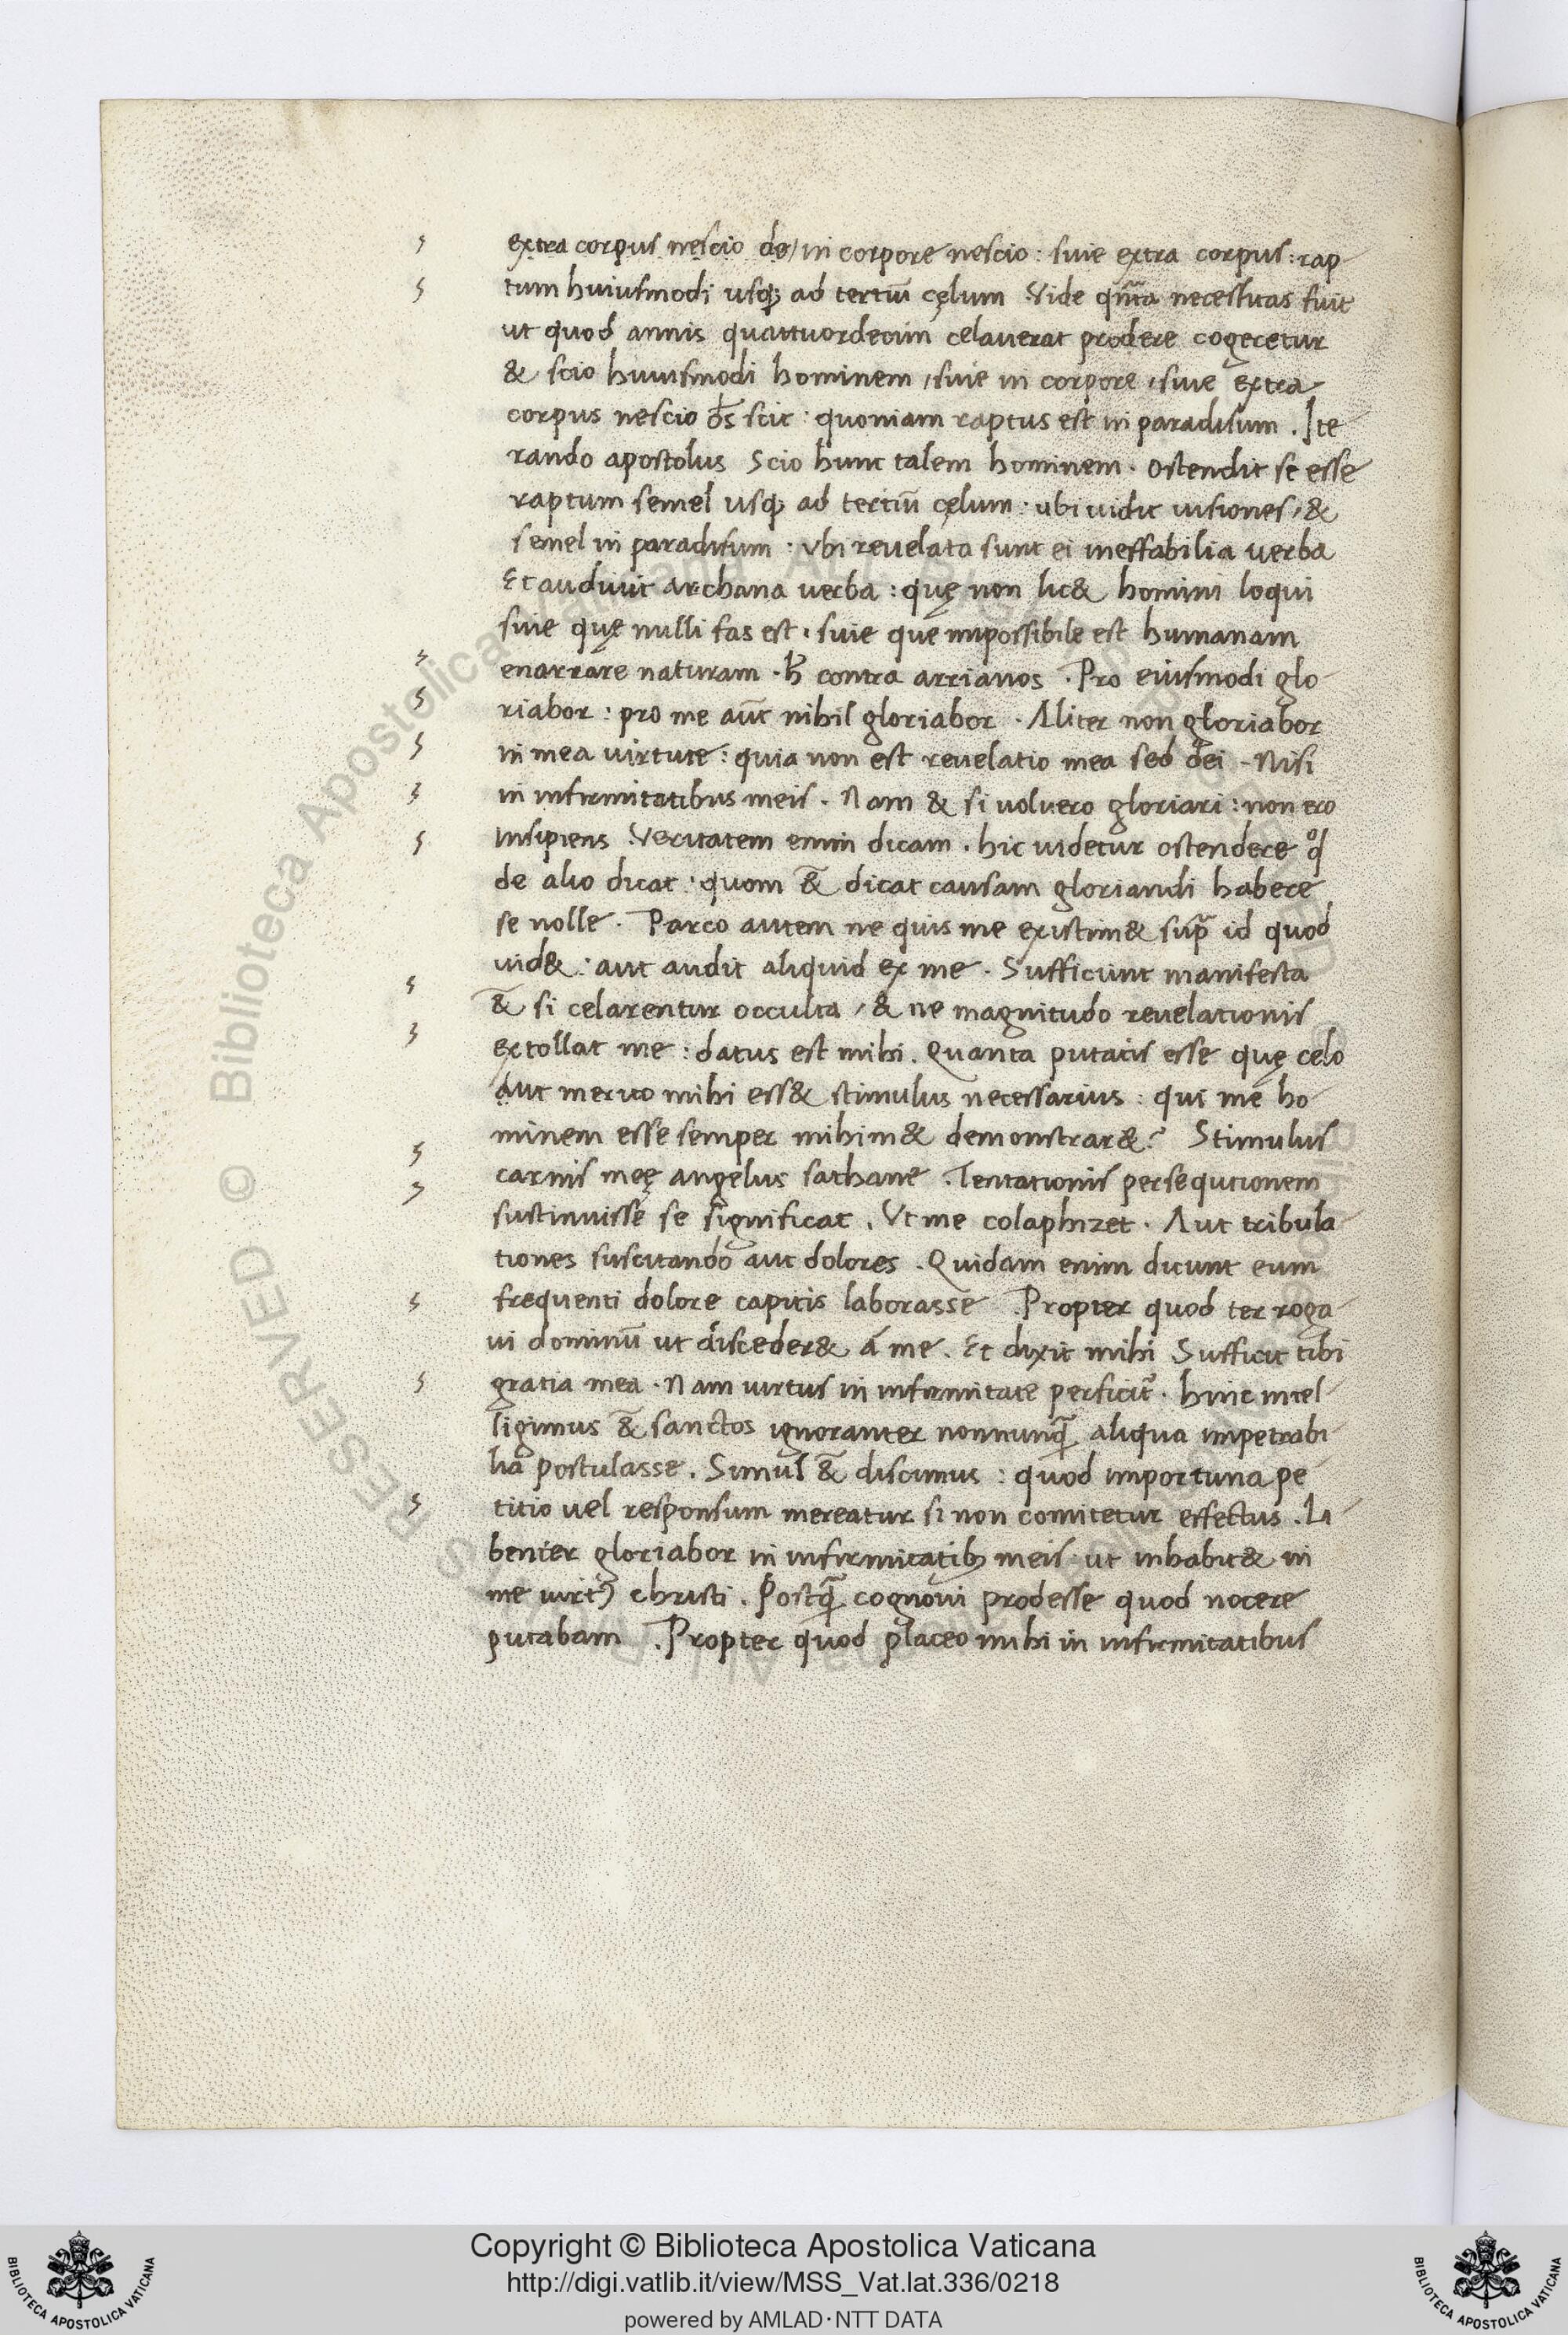 extra corpus nescio do / in corpore nescio : siue extra corpus : rap-
tum huiusmodi usq; ad tertiū cęlum Vide qm̄ta necessitas fuit
ut quod annis quattuordecim celauerat prodere cogeretur
& scio huiusmodi hominem / siue in corpore , siue extra
corpus nescio d̄s scit : quoniam raptus est in paradisum . Ite
rando apostolus Scio hunc talem hominem . ostendit se esse
raptum semel usq; ad tertiū cęlum : ubi uidit uisiones , &
semel in paradisum : ubi reuelata sunt ei ineffabilia uerba
Et audiuit archana uerba : quę non lic& homini loqui
siue quę nulli fas est , siue que impossibile est humanam
enarrare naturam . h̄ contra arrianos . Pro eiusmodi glo-
riabor : pro me aūt nihil gloriabor . Aliter non gloriabor
in mea uirtute : quia non est reuelatio mea sed dei . Nisi
in infirmitatibus meis . Nam & si uoluero gloriari : non ero
insipiens Veritatem enim dicam . hic uidetur ostendere qd
de alio dicat : quom &̄ dicat causam gloriandi habere
se nolle . Parco autem ne quis me existim& sup̄ id quod
uid& : aut audit aliquid ex me . Sufficiunt manifesta
&̄ si celarentur occulta , & ne magnitudo reuelationis
extollat me : datus est mihi . Quanta putatis esse quę celo
aut merito mihi ess& stimulus necessarius : qui me ho
minem esse semper mihim& demonstrar& ? Stimulus
carnis meę angelus sathane . Tentationis persequtionem
sustinuisse se significat . Ut me colaphizet . Aut tribula-
tiones suscitando aut dolores . Quidam enim dicunt eum
frequenti dolore capitis laborasse . Propter quod ter roga-
ui dominū ut disceder& á me . Et dixit mihi Sufficit tibi
gratia mea . Nam uirtus in infirmitate perficit̃ . hinc intel-
ligimus &̄ sanctos ignoranter nonnunq̄ aliqua impetrabi-
lia postulasse . Simul &̄ discimus : quod importuna pe-
titio uel responsum mereatur si non comitetur effectus . Li-
benter gloriabor in infirmitatib; meis : ut inhabit& in
me uirtꝰ christi . Postq̄ cognoui prodesse quod nocere
putabam . Propter quod placeo mihi in infirmitatibus
Copyright © Biblioteca Apostolica Vaticana
http://digi.vatlib.it/view/MSS_Vat.lat.336/0218
powered by AMLAD·NTT DATA
BIBLIOTECA APOSTOLICA VATICANA
BIBLIOTECA APOSTOLICA VATICANA